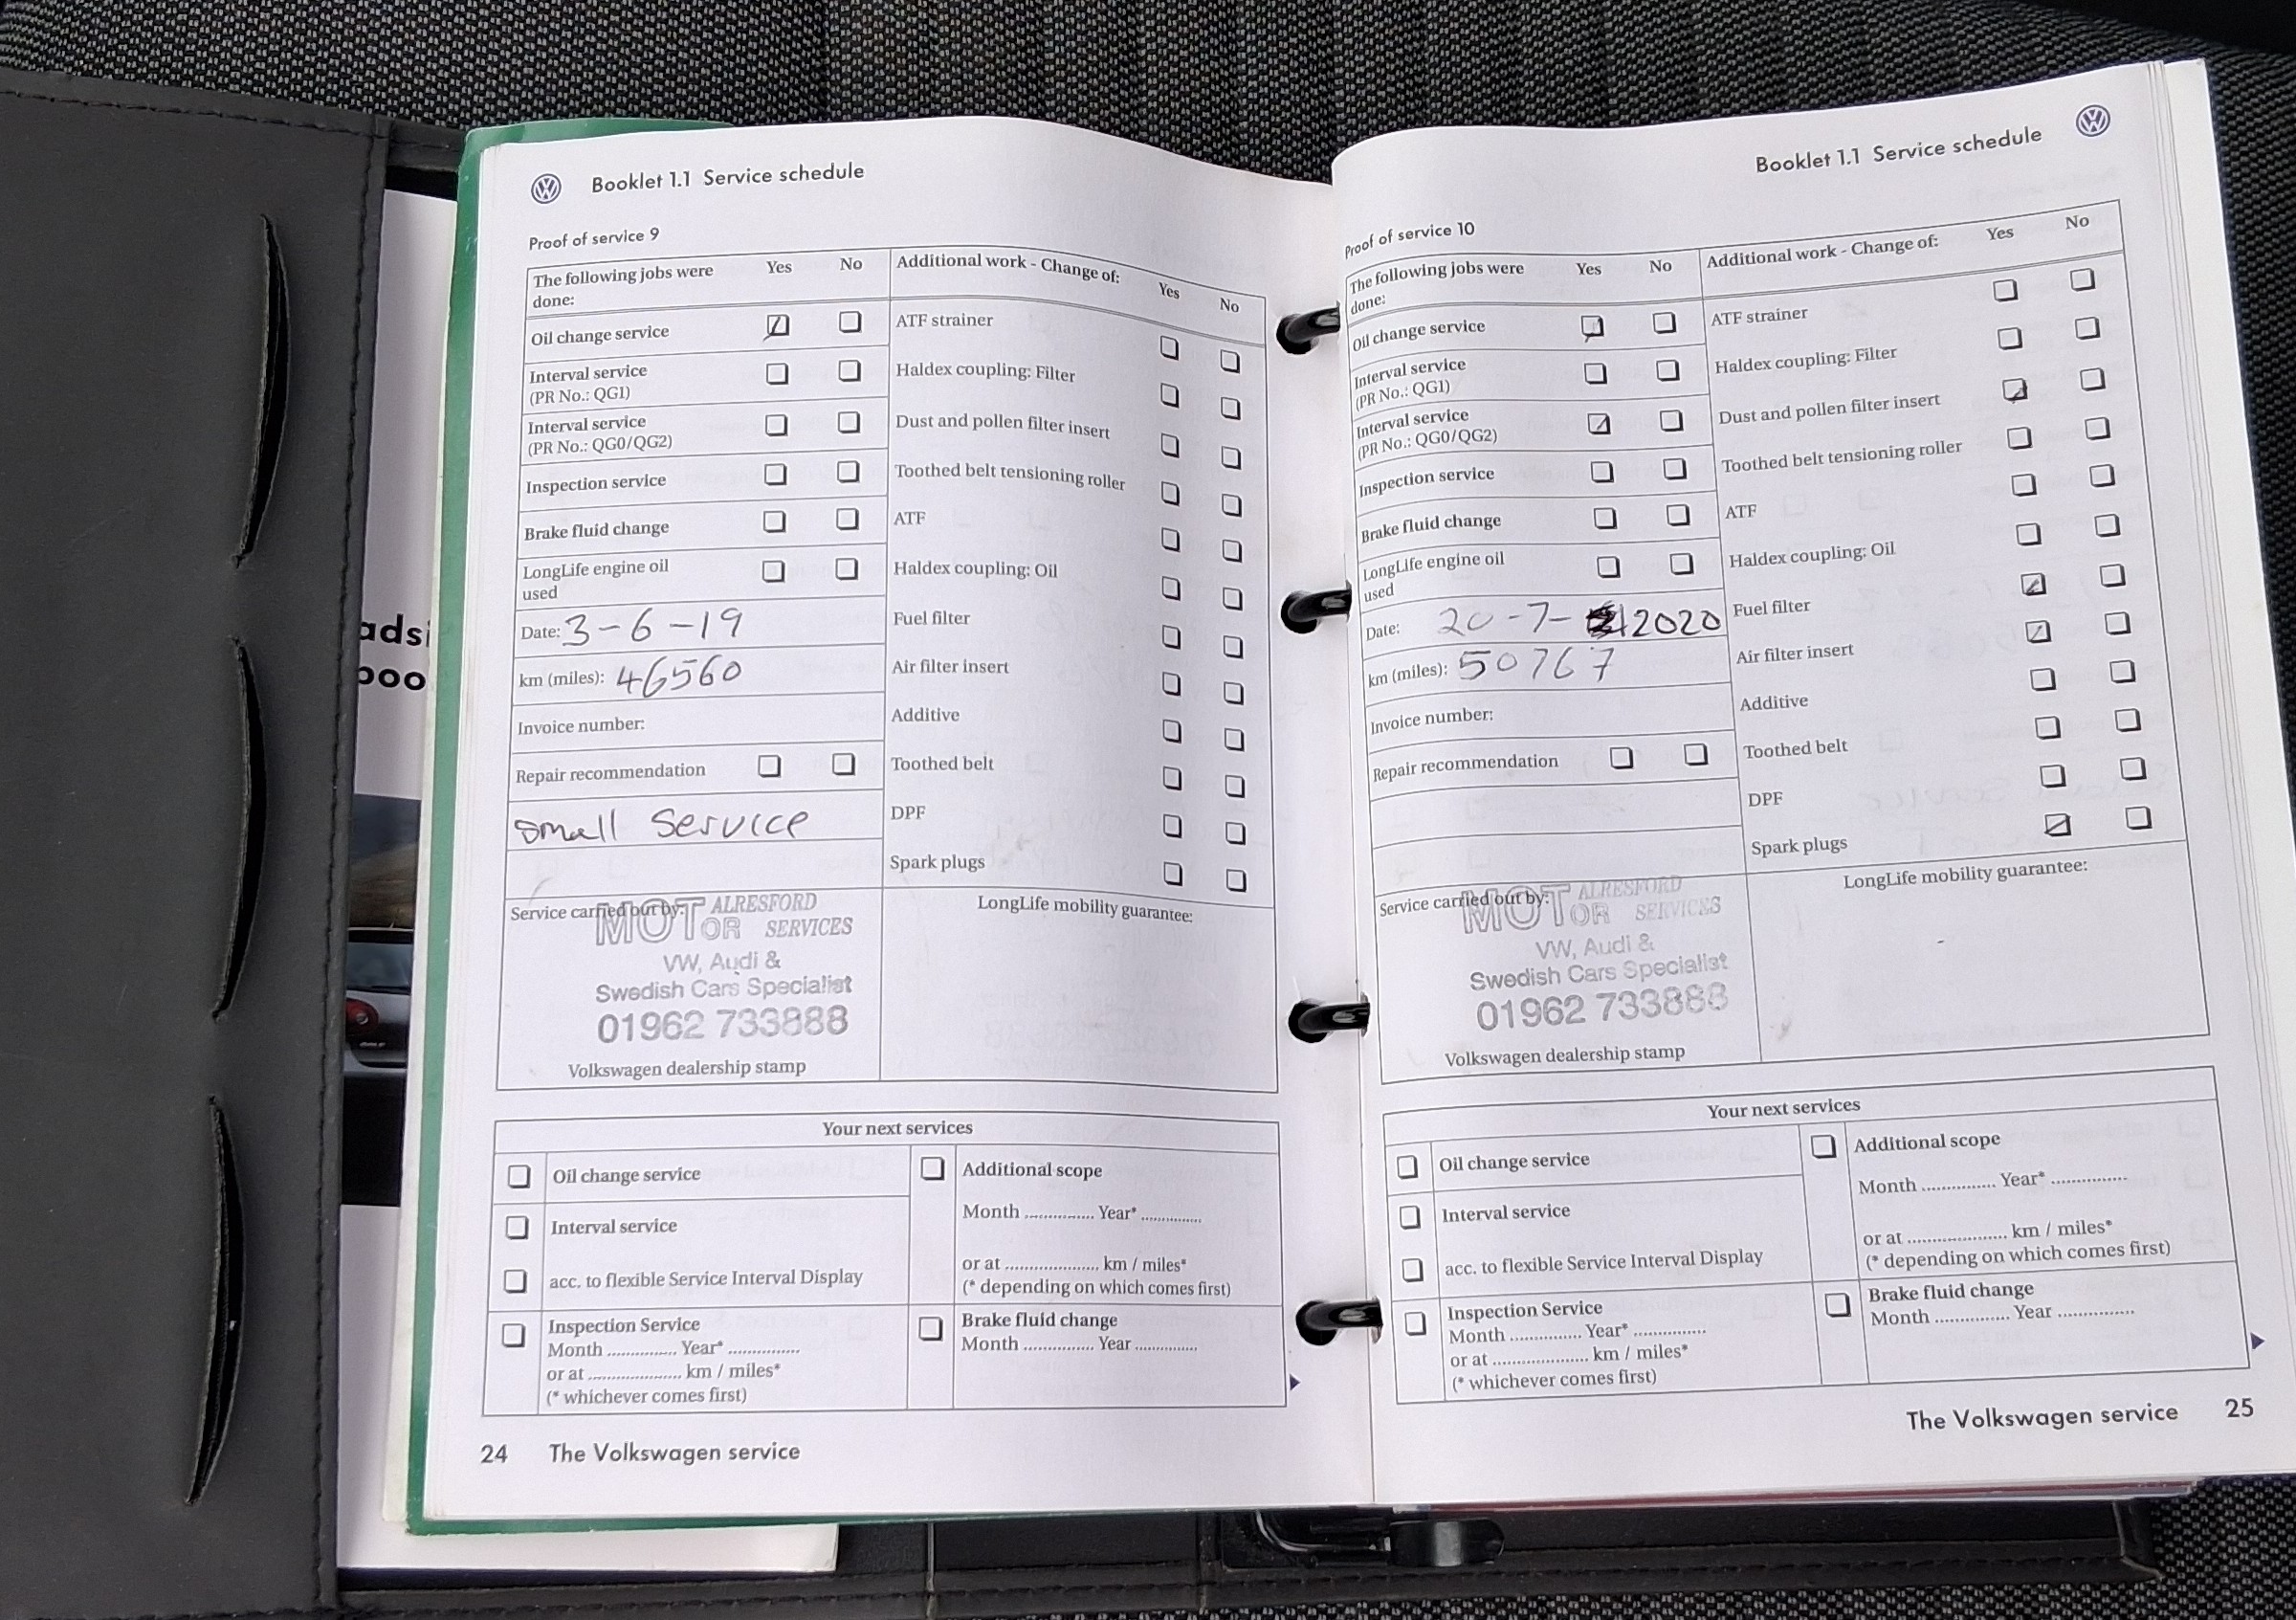 adsi
boo
Booklet 1.1 Service schedule
Proof of service 9
The following jobs were done:
Yes No
Additional work - Change of:
Yes No
Oil change service
Interval service
(PR No.: QG1)
Interval service
(PR No.: QG0/QG2)
Inspection service
Brake fluid change
LongLife engine oil
used
Date: 3-6-19
km (miles): 46560
Invoice number:
Repair recommendation
small service
ATF strainer
Haldex coupling: Filter
Dust and pollen filter insert
Toothed belt tensioning roller
ATF
Haldex coupling: Oil
Fuel filter
Air filter insert
Additive
Toothed belt
DPF
Spark plugs
Service carried out by:
MOTOR ALRESFORD SERVICES
VW, Audi &
Swedish Cars Specialist
01962 733888
Volkswagen dealership stamp
LongLife mobility guarantee:
Your next services
Oil change service
Interval service
acc. to flexible Service Interval Display
Inspection Service
Month .............. Year* ..............
or at .................... km / miles*
(* whichever comes first)
Additional scope
Month .............. Year* ..............
or at .................... km / miles*
(* depending on which comes first)
Brake fluid change
Month .............. Year ..............
24 The Volkswagen service
Booklet 1.1 Service schedule
Proof of service 10
The following jobs were done:
Yes No
Additional work - Change of:
Yes No
Oil change service
Interval service
(PR No.: QG1)
Interval service
(PR No.: QG0/QG2)
Inspection service
Brake fluid change
LongLife engine oil
used
Date: 20-7-2020
km (miles): 50767
Invoice number:
Repair recommendation
ATF strainer
Haldex coupling: Filter
Dust and pollen filter insert
Toothed belt tensioning roller
ATF
Haldex coupling: Oil
Fuel filter
Air filter insert
Additive
Toothed belt
DPF
Spark plugs
Service carried out by:
MOTOR ALRESFORD SERVICES
VW, Audi &
Swedish Cars Specialist
01962 733888
Volkswagen dealership stamp
LongLife mobility guarantee:
Your next services
Oil change service
Interval service
acc. to flexible Service Interval Display
Inspection Service
Month .............. Year* ..............
or at .................... km / miles*
(* whichever comes first)
Additional scope
Month .............. Year* ..............
or at .................... km / miles*
(* depending on which comes first)
Brake fluid change
Month .............. Year ..............
The Volkswagen service 25